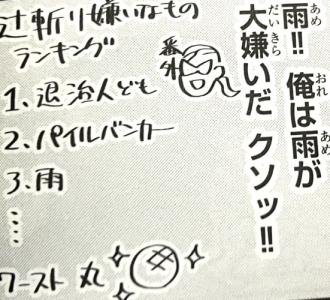 雨!! 俺は雨が
大嫌いだ クソッ!!
辻斬り嫌いなもの
ランキング
番外
1、退治人ども
2、パイルバンカー
3、雨
ワースト 丸